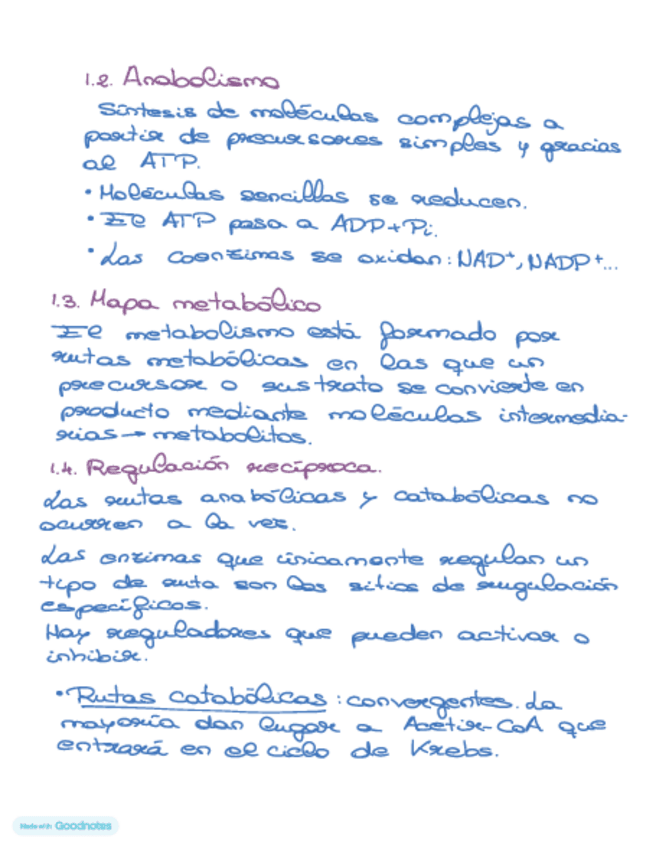 1.2. Anabolismo
Síntesis de moléculas complejas a
partir de precursores simples y gracias
al ATP.
• Moléculas sencillas se reducen.
• El ATP pasa a ADP+Pi.
• Las coenzimas se oxidan: NAD+, NADP+...
1.3. Mapa metabólico
El metabolismo está formado por
rutas metabólicas en las que un
precursor o sustrato se convierte en
producto mediante moléculas intermedia-
rias → metabolitos.
1.4. Regulación recíproca.
Las rutas anabólicas y catabólicas no
ocurren a la vez.
Las enzimas que únicamente regulan un
tipo de ruta son los sitios de rugulación
específicos.
Hay reguladores que pueden activar o
inhibir.
• Rutas catabólicas: convergentes. La
mayoría dan lugar a Acetir-CoA que
entrará en el ciclo de Krebs.
Made with Goodnotes